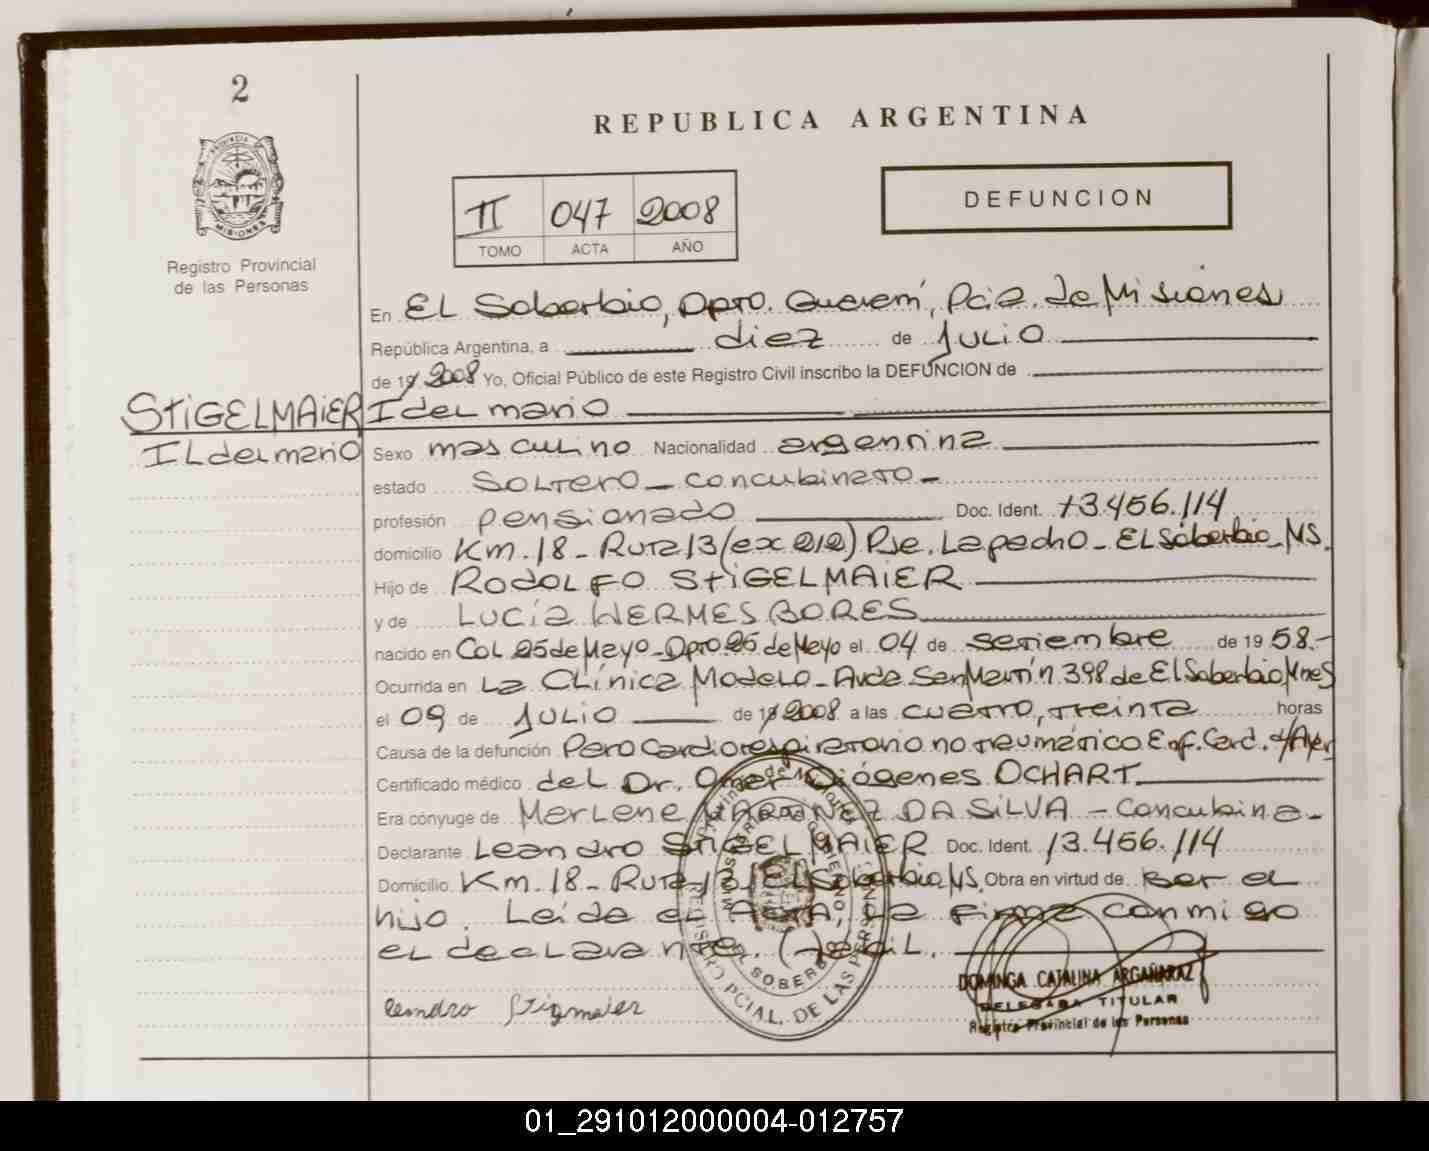 2
REPUBLICA ARGENTINA
PROVINCIA
MISIONES
Registro Provincial
de las Personas
II 047 2008
TOMO ACTA AÑO
DEFUNCION
En EL Soberbio, Dpto. Guaraní, Pcia. de Misiones
República Argentina, a diez de JULIO
de 19 2008 Yo, Oficial Público de este Registro Civil inscribo la DEFUNCION de
STIGELMAIER Idelmario
ILdelmario
Sexo masculino Nacionalidad argentina
estado SOLTERO - concubinato -
profesión pensionado Doc. Ident. 13.456.114
domicilio Km. 18 - Ruta 13 (ex 212) Pje. Lapacho - EL Soberbio - MS.
Hijo de RODOLFO STIGELMAIER
y de LUCía HERMES BORES
nacido en Col. 25 de Mayo - Dpto. 25 de Mayo el 04 de setiembre de 19 58.-
Ocurrida en La CLínica Modelo - Avda. San Martín 398 de El Soberbio Mnes
el 09 de JULIO de 19 2008 a las cuatro, treinta horas
Causa de la defunción Paro cardiorespiratorio no traumático Enf. Card.
Certificado médico del Dr. Omar Diógenes OCHART
Era cónyuge de Marlene MARTINEZ DA SILVA - Concubina -
Declarante Leandro STIGELMAIER Doc. Ident. 13.456.114
Domicilio Km. 18 - Ruta 13 El Soberbio, MS. Obra en virtud de ser el
hijo. Leída el Acta, La firma conmigo
el declarante.
leandro Stigmaier
DOMINGA CATALINA ARGAÑARAZ
DELEGADA TITULAR
Registro Provincial de las Personas
01_291012000004-012757